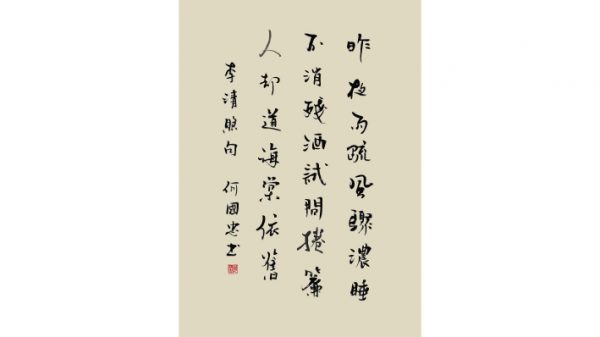 昨夜雨疏風驟濃睡
不消殘酒試問捲簾
人却道海棠依舊
李清照句 何國忠書